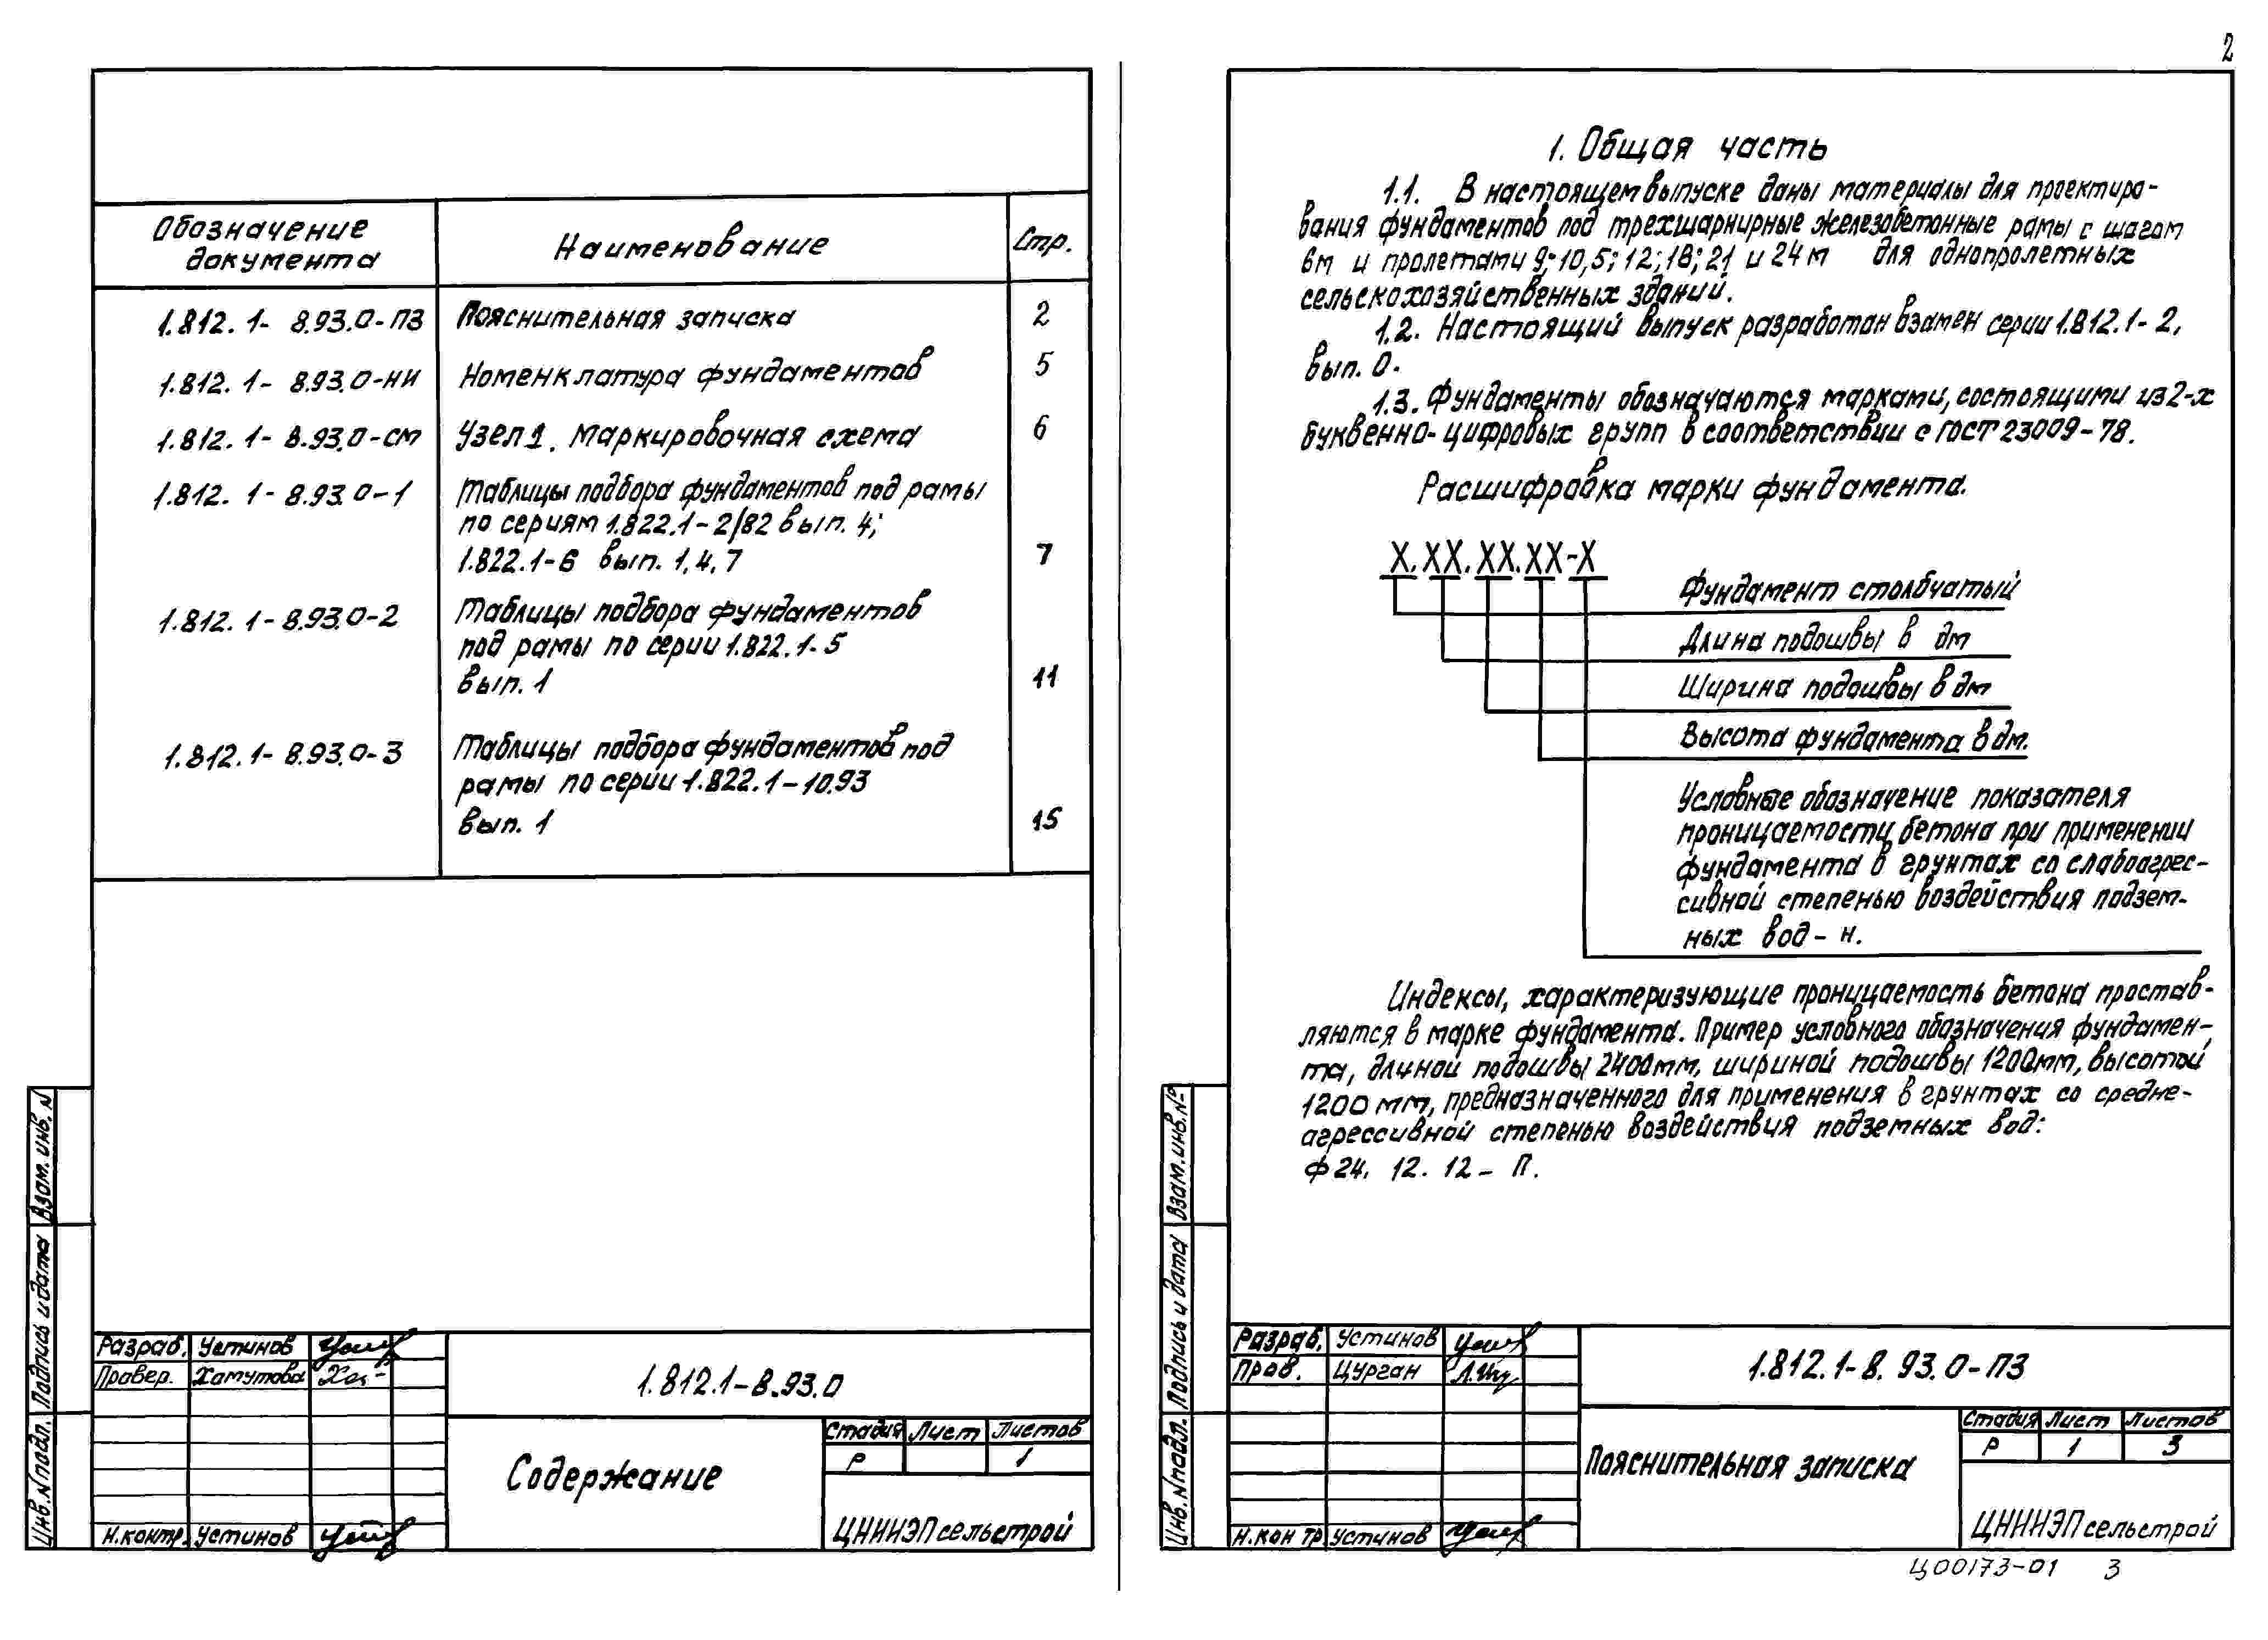 Обозначение документа Наименование Стр.
1.812.1-8.93.0-ПЗ Пояснительная записка 2
1.812.1-8.93.0-НИ Номенклатура фундаментов 5
1.812.1-8.93.0-СМ Узел 1. Маркировочная схема 6
1.812.1-8.93.0-1 Таблицы подбора фундаментов под рамы
по сериям 1.822.1-2/82 вып. 4;
1.822.1-6 вып. 1, 4, 7 7
1.812.1-8.93.0-2 Таблицы подбора фундаментов
под рамы по серии 1.822.1-5
вып. 1 11
1.812.1-8.93.0-3 Таблицы подбора фундаментов под
рамы по серии 1.822.1-10.93
вып. 1 15
Взам. инв. N
Подпись и дата
Инв. N подл.
Разраб. Устинов
Провер. Хамутова
Н.контр. Устинов
1.812.1-8.93.0
Содержание
Стадия Лист Листов
Р 1
ЦНИИЭПсельстрой
2
1. Общая часть
1.1. В настоящем выпуске даны материалы для проектиро-
вания фундаментов под трехшарнирные железобетонные рамы с шагом
6м и пролетами 9; 10,5; 12; 18; 21 и 24м для однопролетных
сельскохозяйственных зданий.
1.2. Настоящий выпуск разработан взамен серии 1.812.1-2,
вып. 0.
1.3. Фундаменты обозначаются марками, состоящими из 2-х
буквенно-цифровых групп в соответствии с ГОСТ 23009-78.
Расшифровка марки фундамента.
Х.ХХ.ХХ.ХХ-Х
Фундамент столбчатый
Длина подошвы в дм
Ширина подошвы в дм
Высота фундамента в дм.
Условные обозначение показателя
проницаемости бетона при применении
фундамента в грунтах со слабоагрес-
сивной степенью воздействия подзем-
ных вод - н.
Индексы, характеризующие проницаемость бетона простав-
ляются в марке фундамента. Пример условного обозначения фундамен-
та, длиной подошвы 2400мм, шириной подошвы 1200мм, высотой
1200 мм, предназначенного для применения в грунтах со средне-
агрессивной степенью воздействия подземных вод:
ф 24. 12. 12 - П.
Взам. инв. №
Подпись и дата
Инв. N подл.
Разраб. Устинов
Пров. Цурган
Н.контр. Устинов
1.812.1-8.93.0-ПЗ
Пояснительная записка
Стадия Лист Листов
Р 1 3
ЦНИИЭПсельстрой
Ц00173-01 3